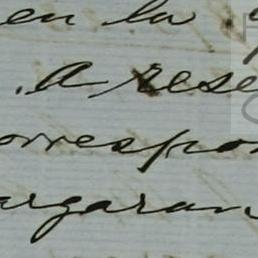 en la
. A rese
orrespon
argaran